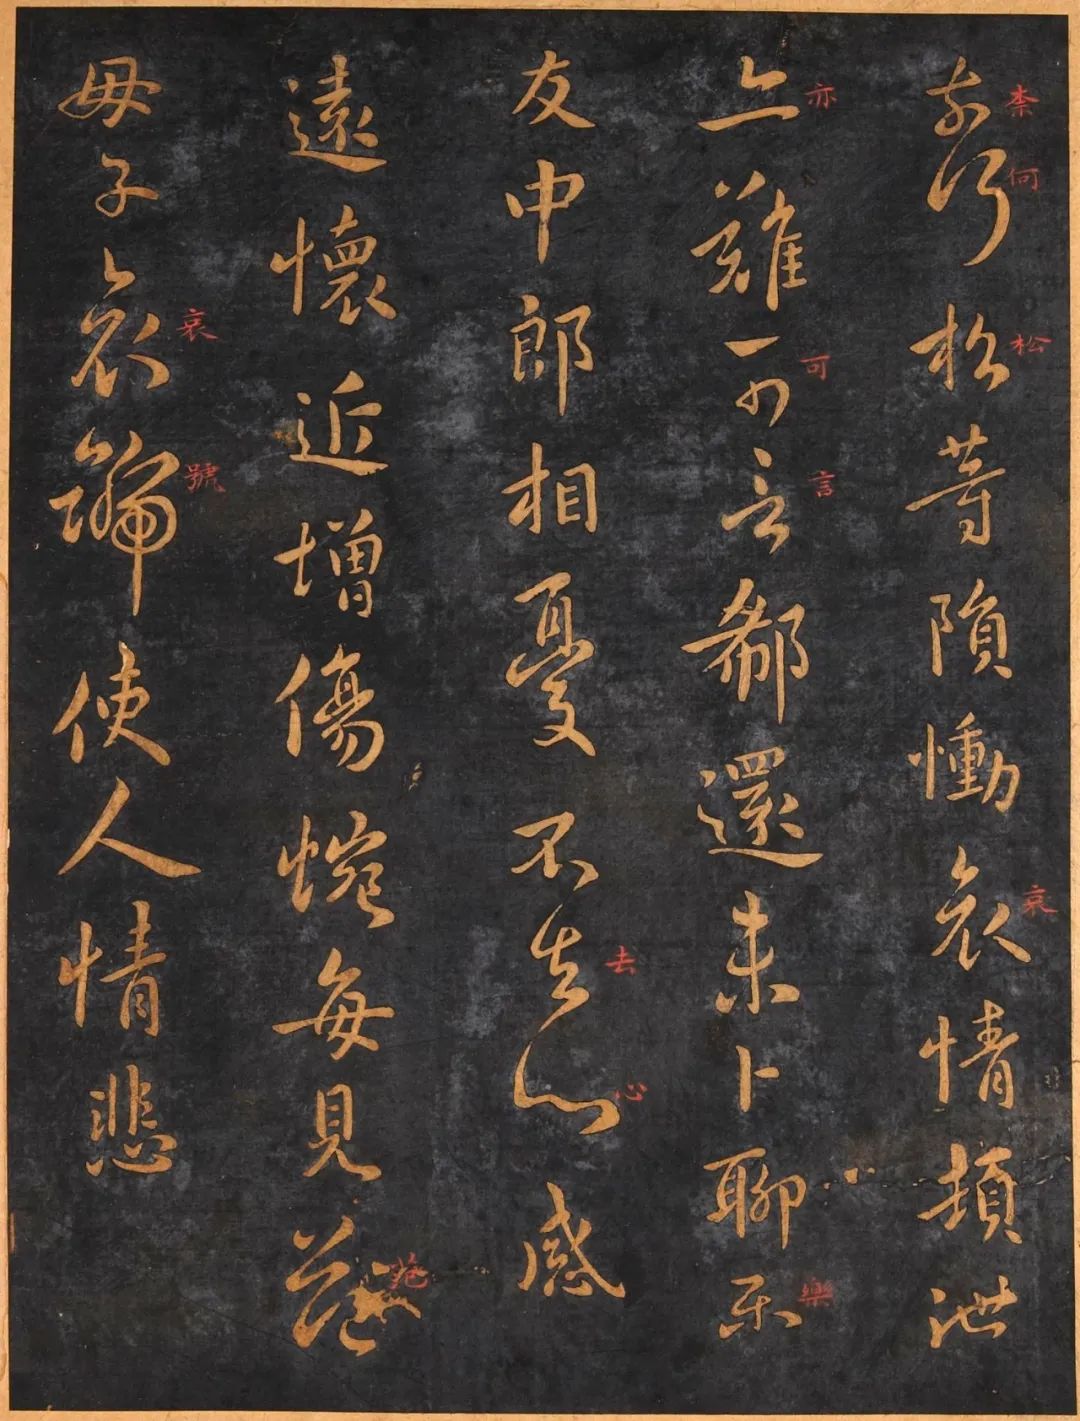 柰何松等隕慟哀情頓泄
柰何松哀
亦難可言郗還未卜聊樂
亦可言樂
友中郎相憂不去心感
去心
遠懷近增傷惋每見范
范
母子哀號使人情悲
哀號